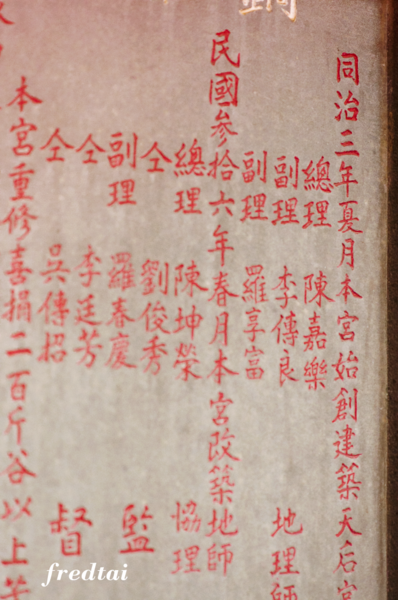 同治三年夏月本宮始創建築天后宮
總理 陳嘉樂
副理 李傳良 地理師
副理 羅享富
民國參拾六年春月本宮改築地師
總理 陳坤榮 協理
仝 劉俊秀
副理 羅春慶 監
仝 李廷芳
仝 吳傳招 督
本宮重修喜捐二百斤谷以上芳
fredtai